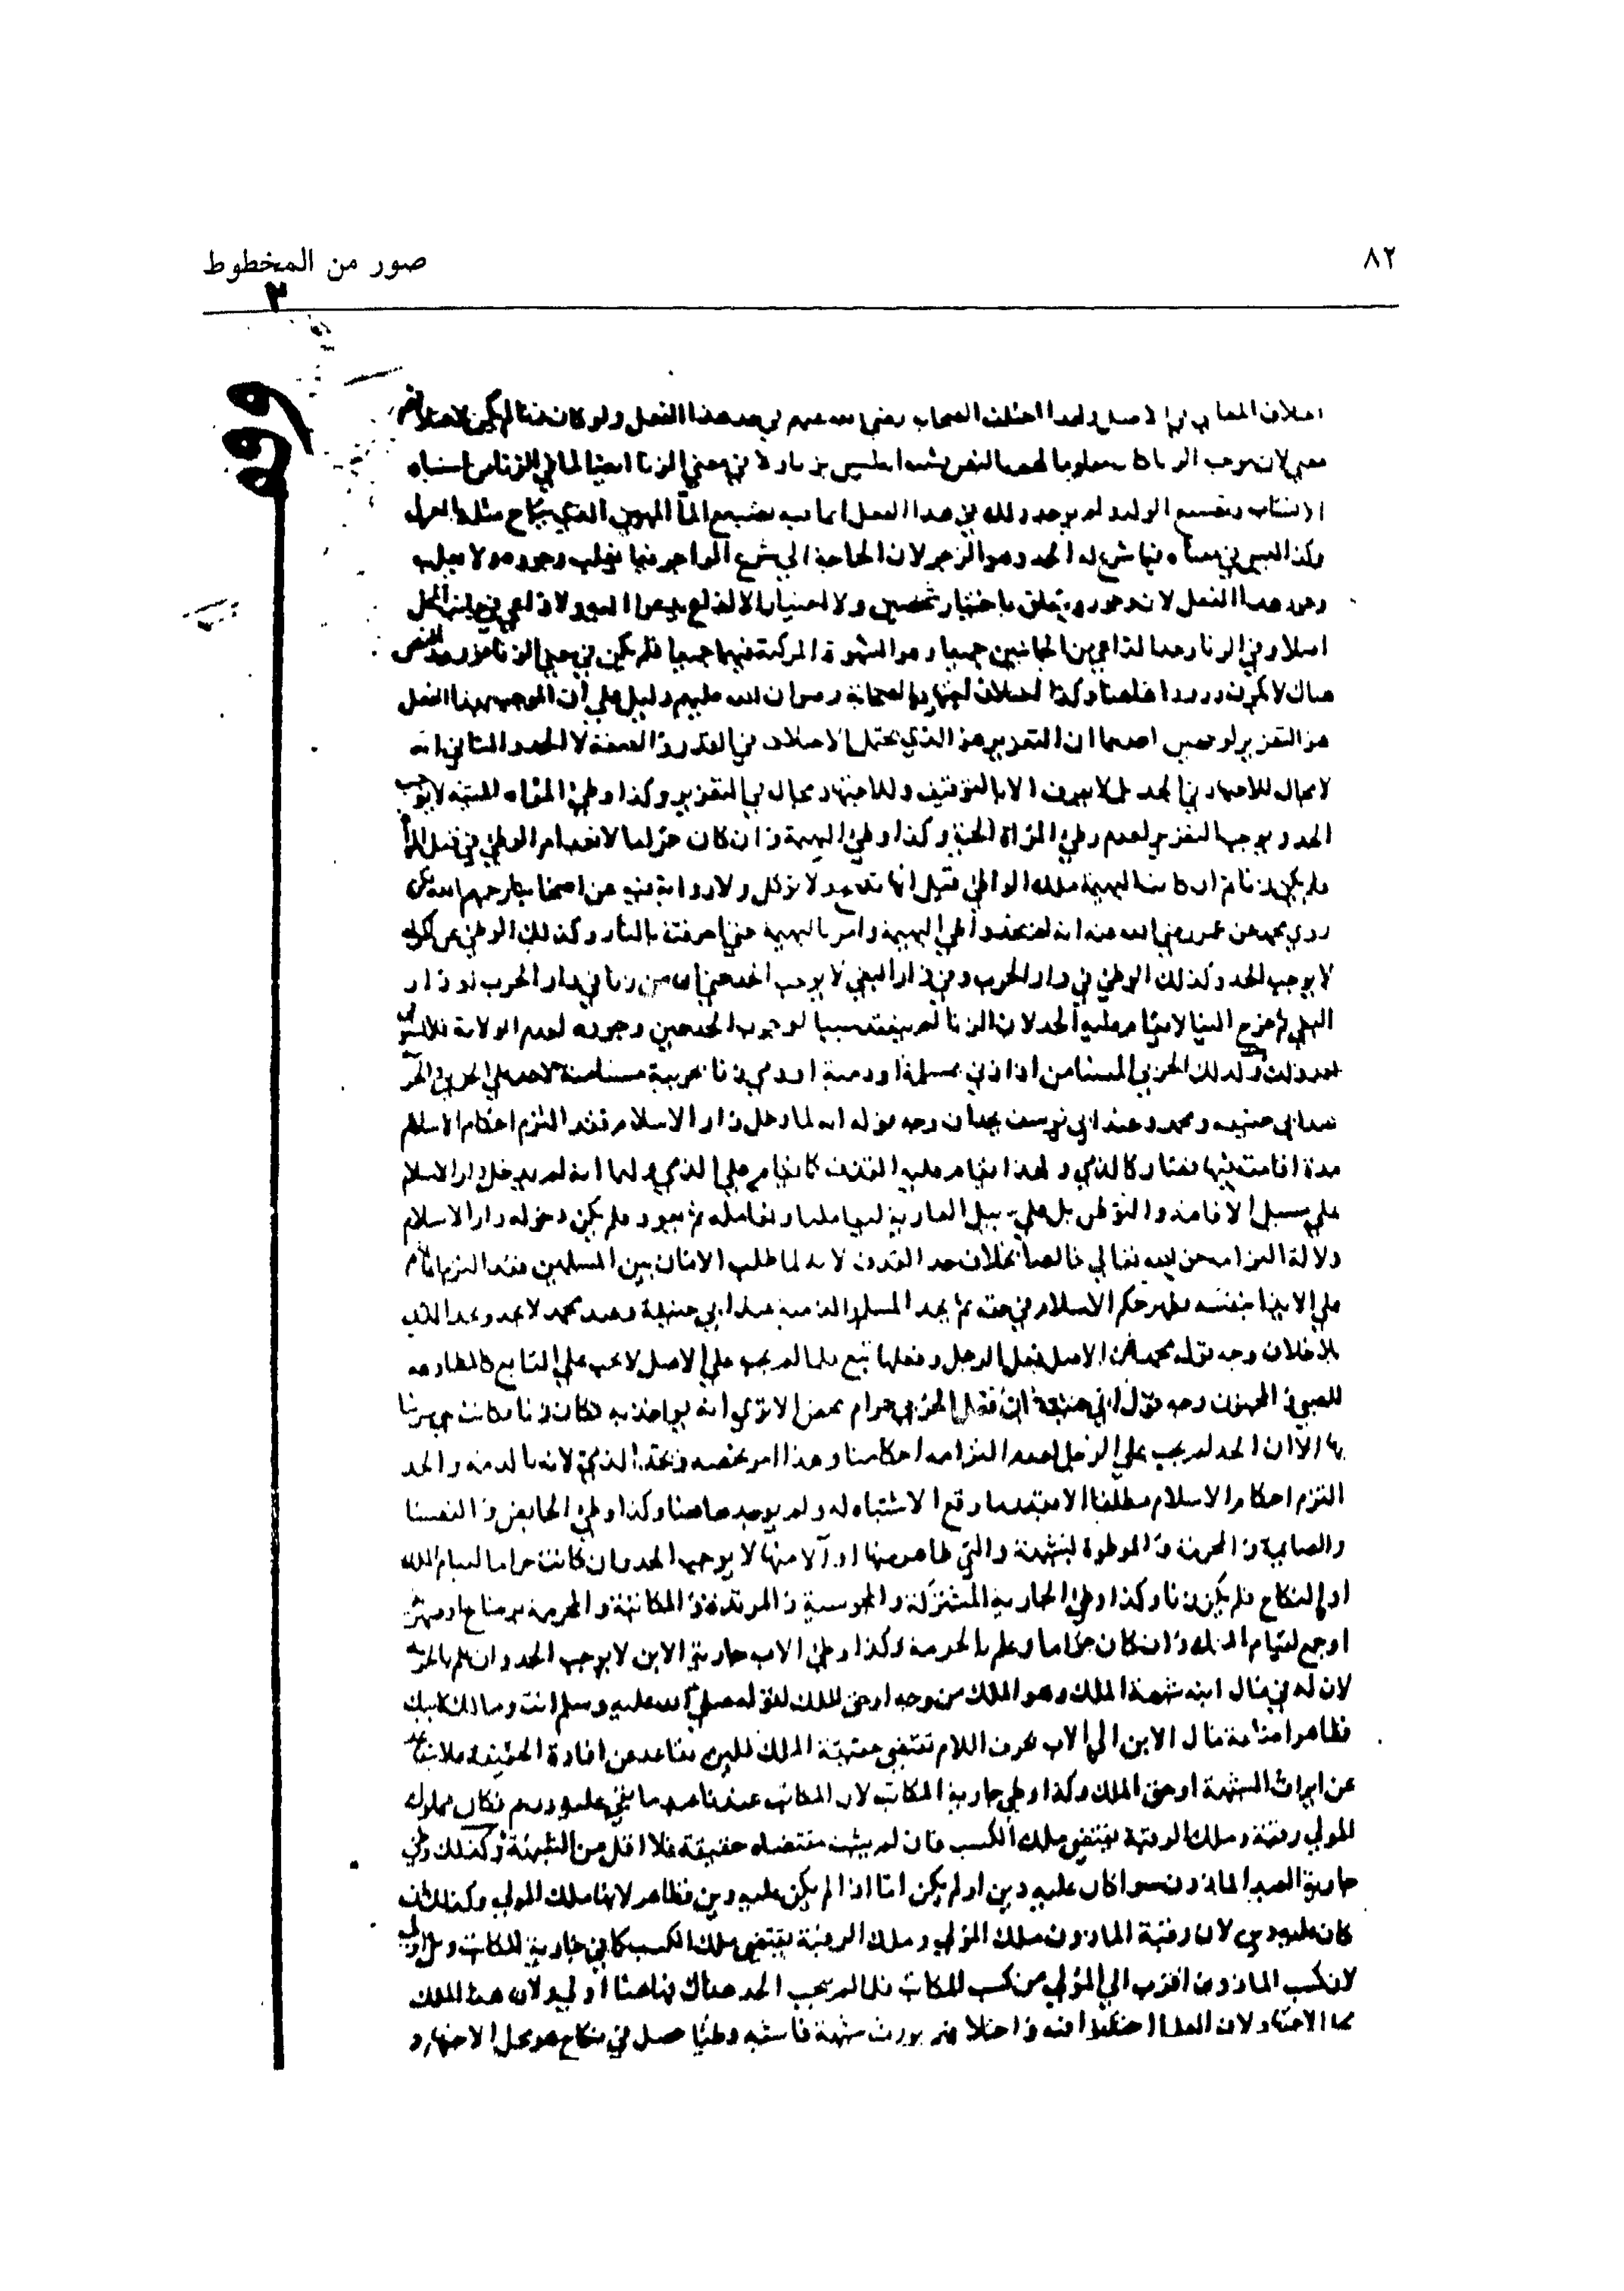 ٨٢
صور من المخطوط
٣
وقف
اختلاف المعاني لا اختلف الصحابة رضي الله عنهم في حد هذا الفعل ولو كان زنا لم يكن لاختلافهم
معنى لان موجب الزنا كان معلوما لهم بالنص فثبت انه ليس بزنا ولا في معنى الزنا ايضا لما في الزنا من اشتباه
الانساب وتضييع الولد ولم يوجد ذلك في هذا الفعل انما فيه تضييع الماء المهين الذي يباح مثله بالعزل
وكذا ليس في معناه فيما شرع له الحد وهو الزجر لان الحاجة الى شرع الزاجر فيما يغلب وجوده ولا يغلب
وجود هذا الفعل لان وجوده يتعلق باختيار شخصين ولا اختيار الا لداع يدعو اليه ولا داعي في جانب المحل
اصلا وفي الزنا وجد الداعي من الجانبين جميعا وهو الشهوة المركبة فيهما جميعا فلم يكن في معنى الزنا فورود النص
هناك لا يكون ورودا هاهنا وكذا اختلاف اجتهاد الصحابة رضوان الله عليهم دليل على ان الموجب بهذا الفعل
هو التعزير لوجهين احدهما ان التعزير هو الذي يحتمل الاختلاف في القدر والصفة لا الحد والثاني انه
لا مجال للاجتهاد في الحد بل لا يعرف الا بالتوقيف وللاجتهاد مجال في التعزير وكذا وطئ المراة الميتة لا يوجب
الحد ويوجب التعزير لعدم وطئ المراة الحية وكذا وطئ البهيمة وان كان حراما لانعدام الوطئ في قبل المراة
فلم يكن زنا ثم ان كانت البهيمة ملك الواطئ قيل انها تذبح ولا تؤكل ولا رواية فيه عن اصحابنا رحمهم الله لكن
روى محمد عن عمر رضي الله عنه انه لم يحد واطئ البهيمة وامر بالبهيمة حتى احرقت بالنار وكذلك الوطئ عن كره
لا يوجب الحد وكذلك الوطئ في دار الحرب وفي دار البغي لا يوجب الحد حتى ان من زنا في دار الحرب او دار
البغي ثم خرج الينا لا يقام عليه الحد لان الزنا لم ينعقد سببا لوجوب الحد حين وجوده لعدم الولاية
وكذلك الحربي المستامن اذا زنى بمسلمة او ذمية او ذمي زنا بحربية مستامنة لا حد على الحربي والحربية
عند ابي حنيفة ومحمد وعند ابي يوسف يحدان وجه قوله انه لما دخل دار الاسلام فقد التزم احكام الاسلام
مدة اقامته فيها فصار كالذمي ولهذا يقام عليه حد القذف كما يقام على الذمي ولهما انه لم يدخل دار الاسلام
على سبيل الاقامة والتوطن بل على سبيل العارية ليعاملنا ونعامله ثم يعود فلم يكن دخوله دار الاسلام
دلالة التزامه حق الله تعالى خالصا بخلاف حد القذف لانه لما طلب الامان بين المسلمين فقد التزم امانهم
على الايذا بنفسه فظهر حكم الاسلام في حقه ثم يحد المسلم والذمية عند ابي حنيفة وعند محمد لا يحد وتحد الذمية
بلا خلاف وجه قول محمد ان الاصل فعل الرجل وفعلها تبع فلما لم يجب على الاصل لا يجب على التابع كالمطاوعة
للصبي والمجنون وجه قول ابي حنيفة ان فعل الحربي حرام محض الا ترى انه يؤاخذ به فكان زنا فكانت هي مزنيا
بها الا ان الحد لم يجب على الرجل لعدم التزامه احكامنا وهذا امر يخصه ويحد الذمي لانه بالذمة والحد
التزم احكام الاسلام مطلقا الا وقع الاشتباه له ولم يوجد هاهنا وكذا وطئ الحائض والنفسا
والصايمة والمحرمة والموطوة بشبهة والتي ظاهر منها او آلى منها لا يوجب الحد وان كانت حراما لقيام الملك
او النكاح فلم يكن زنا وكذا وطئ الجارية المشتركة والمجوسية والمرتدة والمكاتبة والمحرمة برضاع او صهرية
او جمع لقيام الملك وان كان حراما وعلم بالحرمة وكذا وطئ الاب جارية الابن لا يوجب الحد وان علم بالحرمة
لان له في مال ابنه شبهة الملك وهو الملك من وجه او حق الملك لقوله صلى الله عليه وسلم انت ومالك لابيك
فظاهر اضافة مال الابن الى الاب بحرف اللام تقتضي حقيقة الملك فلئن تقاعد عن افادة الحقيقة فلا يتقاعد
عن ايراث الشبهة او حق الملك وكذا وطئ جارية المكاتب لان المكاتب عندنا عبد ما بقي عليه درهم فكان مملوك
المولى رقبة وملك الرقبة يقتضي ملك الكسب فان لم يثبت مقتضاه حقيقة فلا اقل من الشبهة وكذلك وطئ
جارية العبد الماذون سوا كان عليه دين او لم يكن اما اذا لم يكن عليه دين فظاهر لانها ملك المولى وكذلك ان
كان عليه دين لان رقبة الماذون ملك المولى وملك الرقبة يقتضي ملك الكسب كما في جارية المكاتب وبل اولى
لان كسب الماذون اقرب الى المولى من كسب المكاتب فلما لم يجب الحد هناك فهاهنا اولى ولان هذا الملك
محل الاجتهاد لان العلما اختلفوا فيه واختلافهم يورث شبهة فاشبه وطئا حصل في نكاح هو محل الاجتهاد و